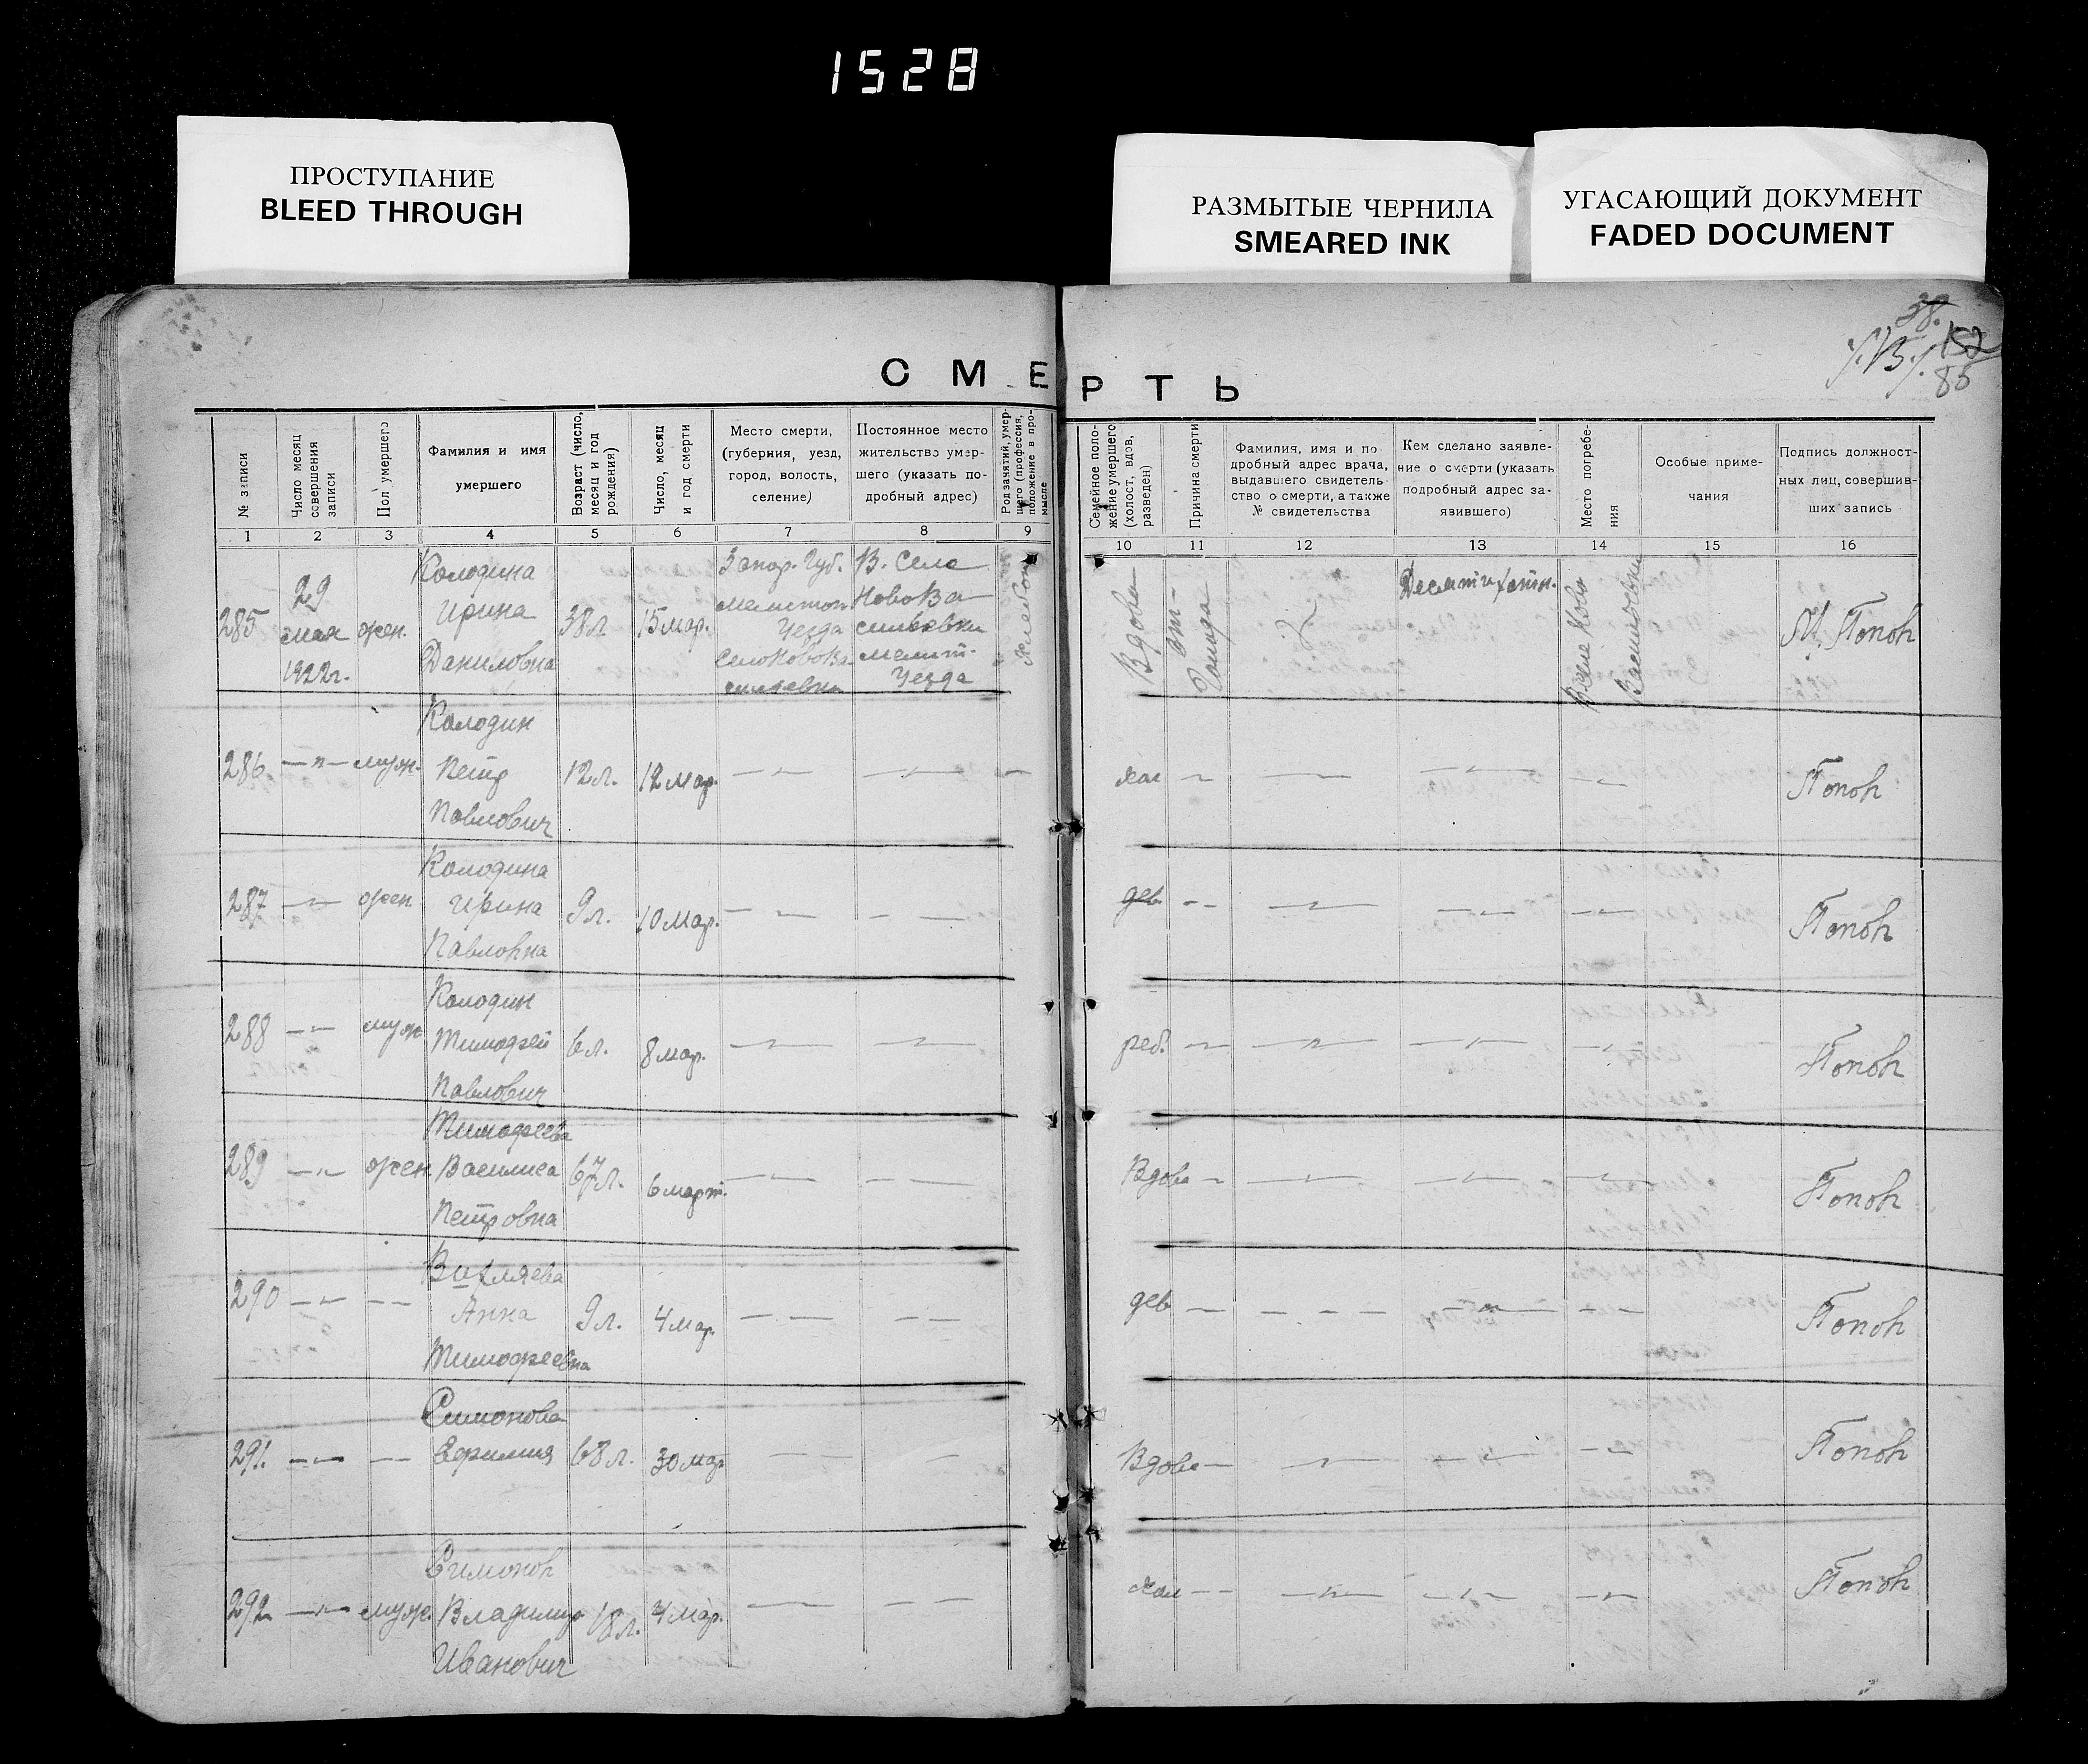 1528
ПРОСТУПАНИЕ
BLEED THROUGH
РАЗМЫТЫЕ ЧЕРНИЛА
SMEARED INK
УГАСАЮЩИЙ ДОКУМЕНТ
FADED DOCUMENT
38.
152
85
СМЕРТЬ
№ записи
Число месяц
совершения
записи
Пол умершего
Фамилия и имя
умершего
Возраст (число,
месяц и год
рождения)
Число, месяц
и год смерти
Место смерти,
(губерния, уезд,
город, волость,
селение)
Постоянное место
жительство умер-
шего (указать по-
дробный адрес)
Род занятий, умер-
шего (профессия,
положение в про-
мысле
Семейное поло-
жение умершего
(холост, вдов,
разведен)
Причина смерти
Фамилия, имя и по
дробный адрес врача,
выдавшего свидетель-
ство о смерти, а также
№ свидетельства
Кем сделано заявле-
ние о смерти (указать
подробный адрес за-
явившего)
Место погребе-
ния
Особые приме-
чания
Подпись должност-
ных лиц, совершив-
ших запись
1 2 3 4 5 6 7 8 9 10 11 12 13 14 15 16
285
29
мая
1922г.
жен.
Колодина
Ирина
Даниловна
38л
15 мар.
Запор. Губ.
Мелитоп
Уезда
Село Новова
сильевка
В. Село
Новова
сильевки
Мелит.
Уезда
Хлебоп
Вдова
От
голода
В селе Ново
Васильевки
М. Попов
286 —"— муж.
Колодин
Петр
Павлович
12л. 12 мар. — — — хол — — — — Попов
287 — жен
Колодина
Ирина
Павловна
9л. 10 мар. — — дев — — — — Попов
288 —"— муж
Колодин
Тимофей
Павлович
6л. 8 мар. — — реб. — — — — Попов
289 —"— жен.
Тимофеева
Василиса
Петровна
67л. 6 март. — — Вдова — — — — Попов
290 — —
Анна
Тимофеевна
9л. 4 мар. — — дев — — — — Попов
291. — —
Симонова
Ефимия
68л. 30 мар — — Вдова — — — — Попов
292 —"— муж.
Симонов
Владимир
Иванович
18л. 4 мар. — — хол — — — — Попов